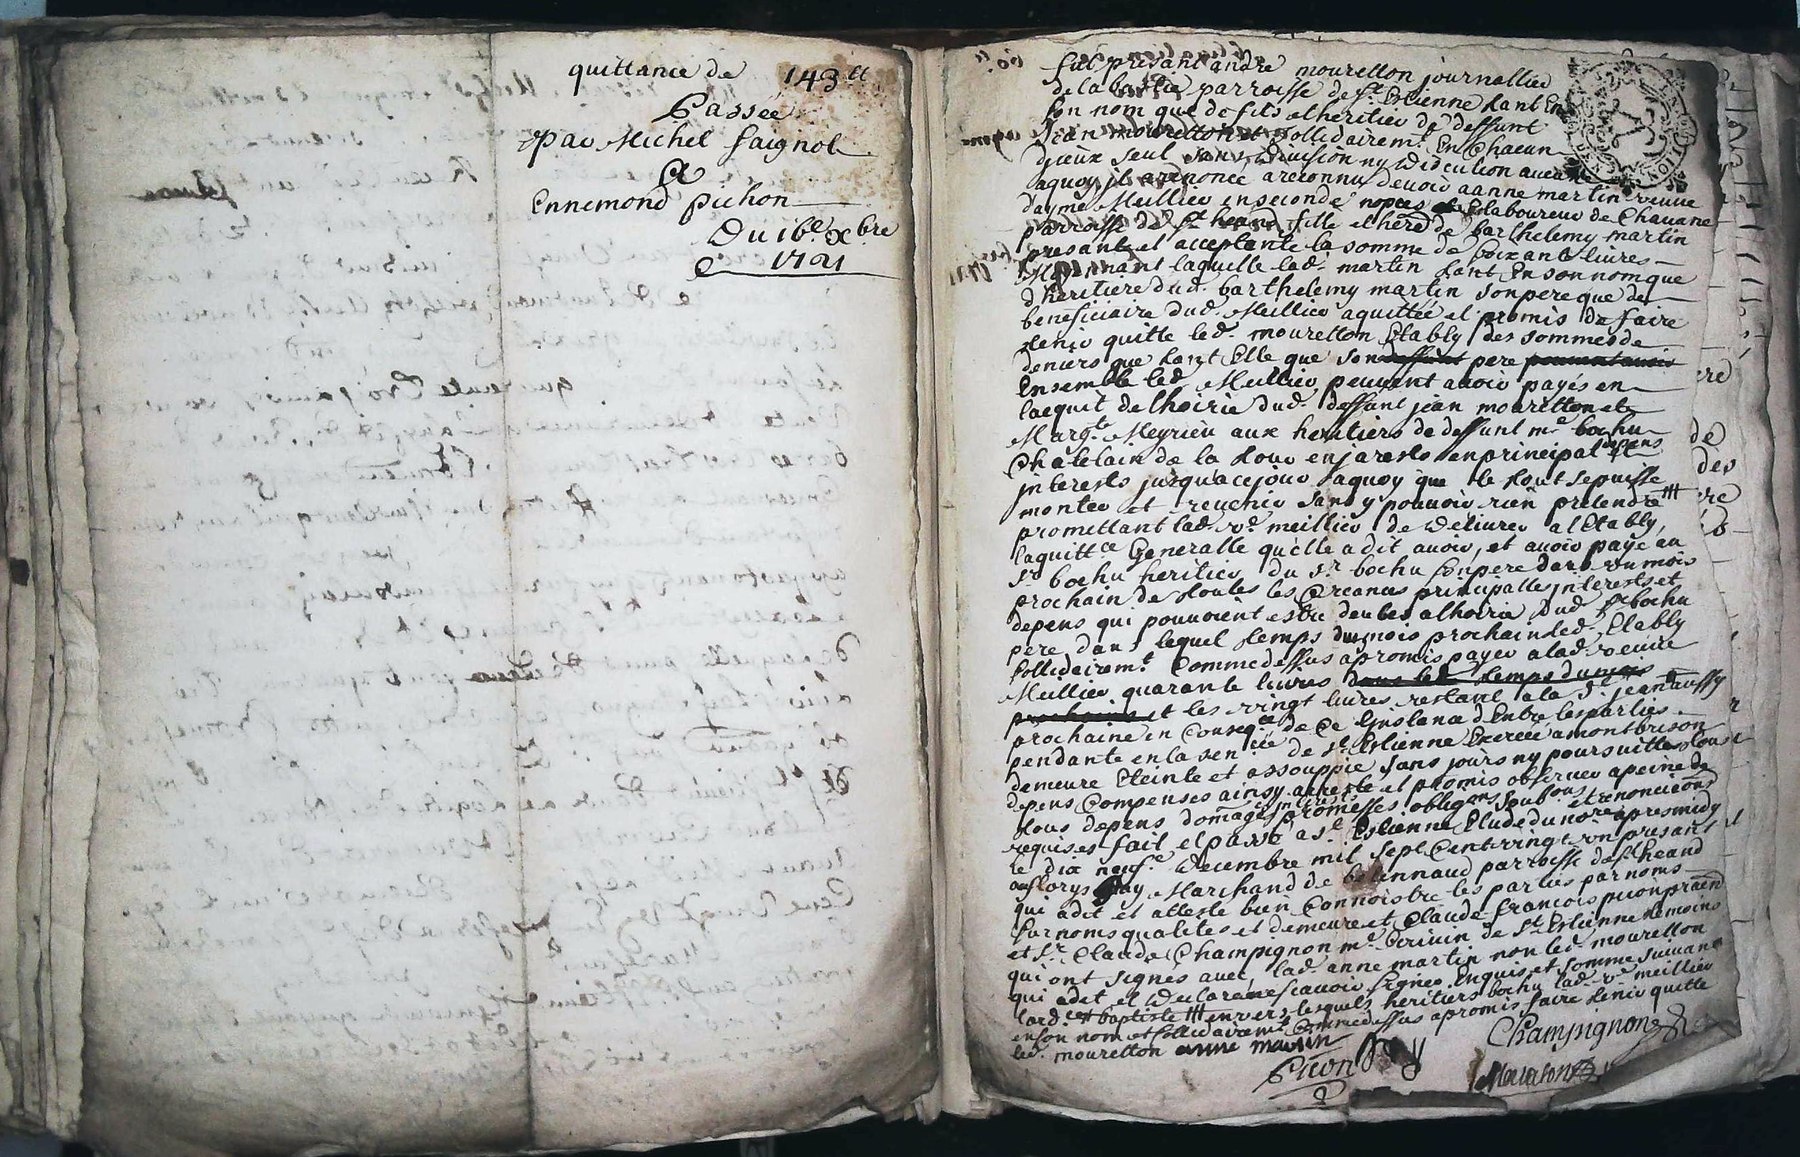 quittance de 143 tt
Passée
par Michel faignol
a
Ennemond pichon
Du 16e xbre
1721
fut présant andré mouretton journallier
de la bastie parroisse de st Estienne tant en
son nom que de fils et heritier de deffunt
Jean mouretton et sollidairemt En Chacun
d'jceux seul sans division ny discution
aquoy jl a renoncé a reconnu devoir a anne martin veuve
d'aymé Meillier en seconde nopces laboureur de Chavane
parroisse de st heand fille et here de barthelemy martin
presante et acceptante la somme de soixante livres
Moyennant laquelle lade martin tant En son nom que
d'heritiere dud. barthelemy martin son pere que de
beneficiaire dud. Meillier a quittée et promis de faire
tenir quitte led. mouretton Etably des sommes de
deniers que tant Elle que son deffunt pere
Ensemble led. Meillier peuvent avoir payés en
lacquit de lhoirie dud. deffunt jean mouretton et
Margte Meyrieu aux heritiers de deffunt me bochu
Châtelain de la tour en jarests en principal depens et
jnterests jusqu'a ce jour a quoy que le tout se puisse
monter et revenir sans y pouvoir rien pretendre
promettant lad. ve meillier de delivrer a l'Etably
laquittce Generalle qu'elle a dit avoir, et avoir payé au
sr bochu heritier du sr bochu son pere dans un mois
prochain de toutes les Creances principalles jnterests et
depens qui pouvoient estre deubes a lhoirie dud. sr bochu
pere, dans lequel temps du mois prochain led. Etably
sollidairemt Comme dessus a promis payer a lad. veuve
Meillier quarante livres dans led. temps du mois
prochain et les vingt livres restant a la st jean aussy
prochaine en Conseqce de Ce Ginstance d'Entre les parties
pendante en la senée de st Estienne Exercée a montbrison
demeure Eteinte et assouppie sans jours ny poursuittes tous
depens Compensés ainsy arresté et promis observer a peine de
tous depens domages jnterests promesses obligons soubons et renonciaons
requises fait et passé a st Estienne Etude du nore apres midy
le dix neufe decembre mil sept Cent vingt un presant
qui a dit et atteste bien Connoistre les parties par noms
surnoms qualités et demeure et Claude francois picon pratn
et sr Claude Champignon me Ecrivin de st Estienne temoins
qui ont signés avec lad. anne martin non led. mouretton
qui a dit et declaré ne scavoir signer Enquis et sommé suivant
lord. et baptiste envers lesquels heritiers bochu lad. ve meillier
en son nom et sollidairemt Comme dessus a promis faire tenir quitte
led. mouretton anne martin
Champignon
Picon